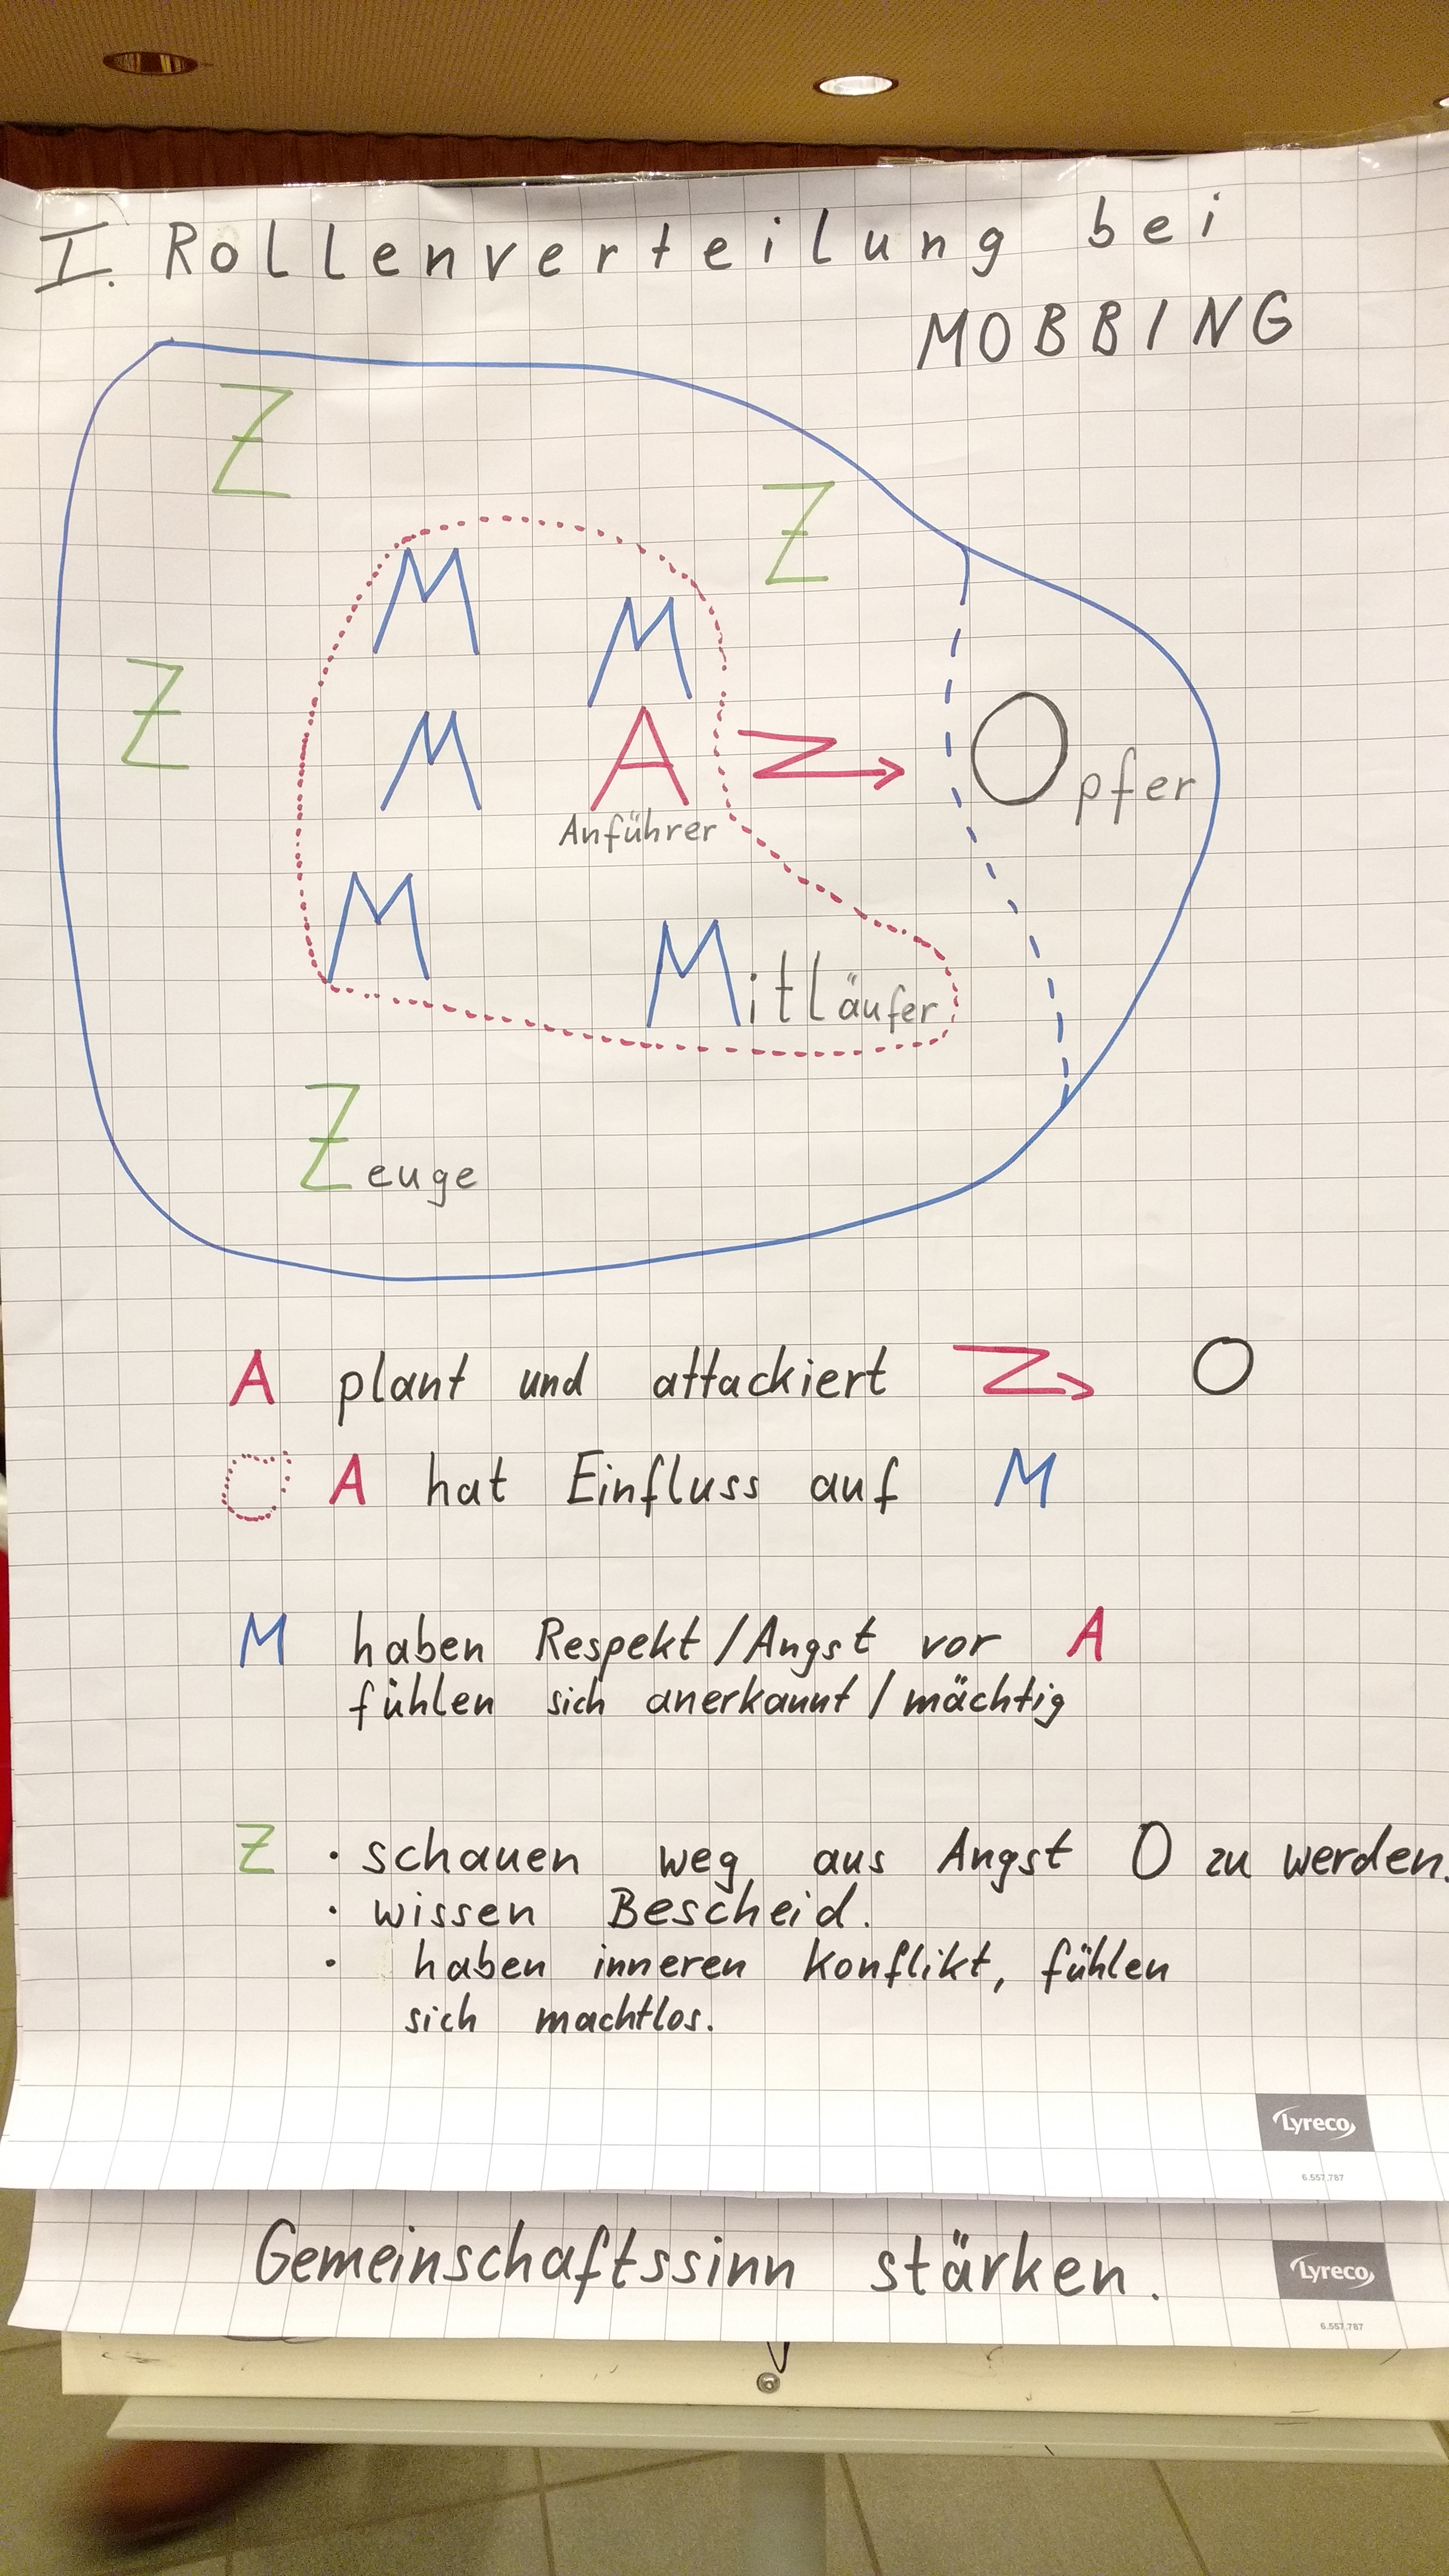 I. Rollenverteilung bei
MOBBING
Z
Z
M
M
Z
M
A
Opfer
Anführer
M
Mitläufer
Zeuge
A plant und attackiert O
A hat Einfluss auf M
M haben Respekt/Angst vor A
fühlen sich anerkannt/mächtig
Z · schauen weg aus Angst O zu werden.
· wissen Bescheid.
· haben inneren Konflikt, fühlen
sich machtlos.
Lyreco
6.557.787
Gemeinschaftssinn stärken.
Lyreco
6.557.787